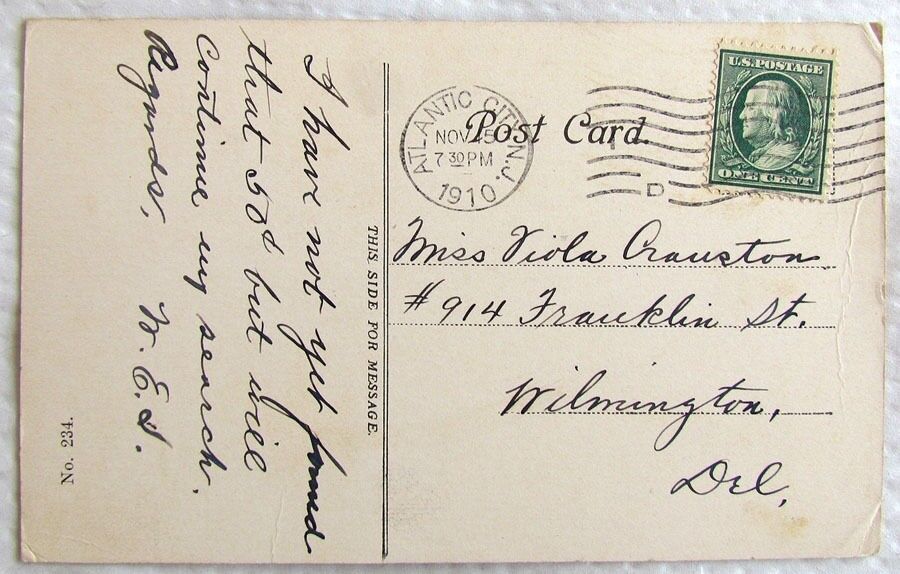 I have not yet found
that 50¢ but will
continue my search.
Regards, W. E. S.
No. 234.
THIS SIDE FOR MESSAGE.
Post Card.
ATLANTIC CITY, N.J.
NOV 15
7 30 PM
1910
D
U.S. POSTAGE
ONE CENT
Miss Viola Cranston
# 914 Franklin St.
Wilmington,
Del,